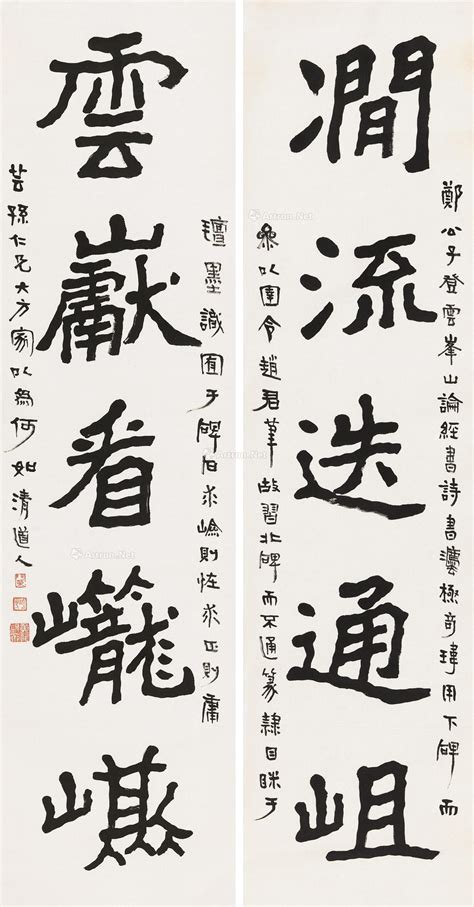 澗流迭通岨
鄭公子登雲峯山論經書詩書灋極奇瑋用下碑而
參以圉令趙君筆故習北碑而不通篆隸目眯于
雲巘看巃
墨識囿于碑石求嶮則怪求正則庸
芸孫仁兄大方家以為何如清道人
Artron.Net